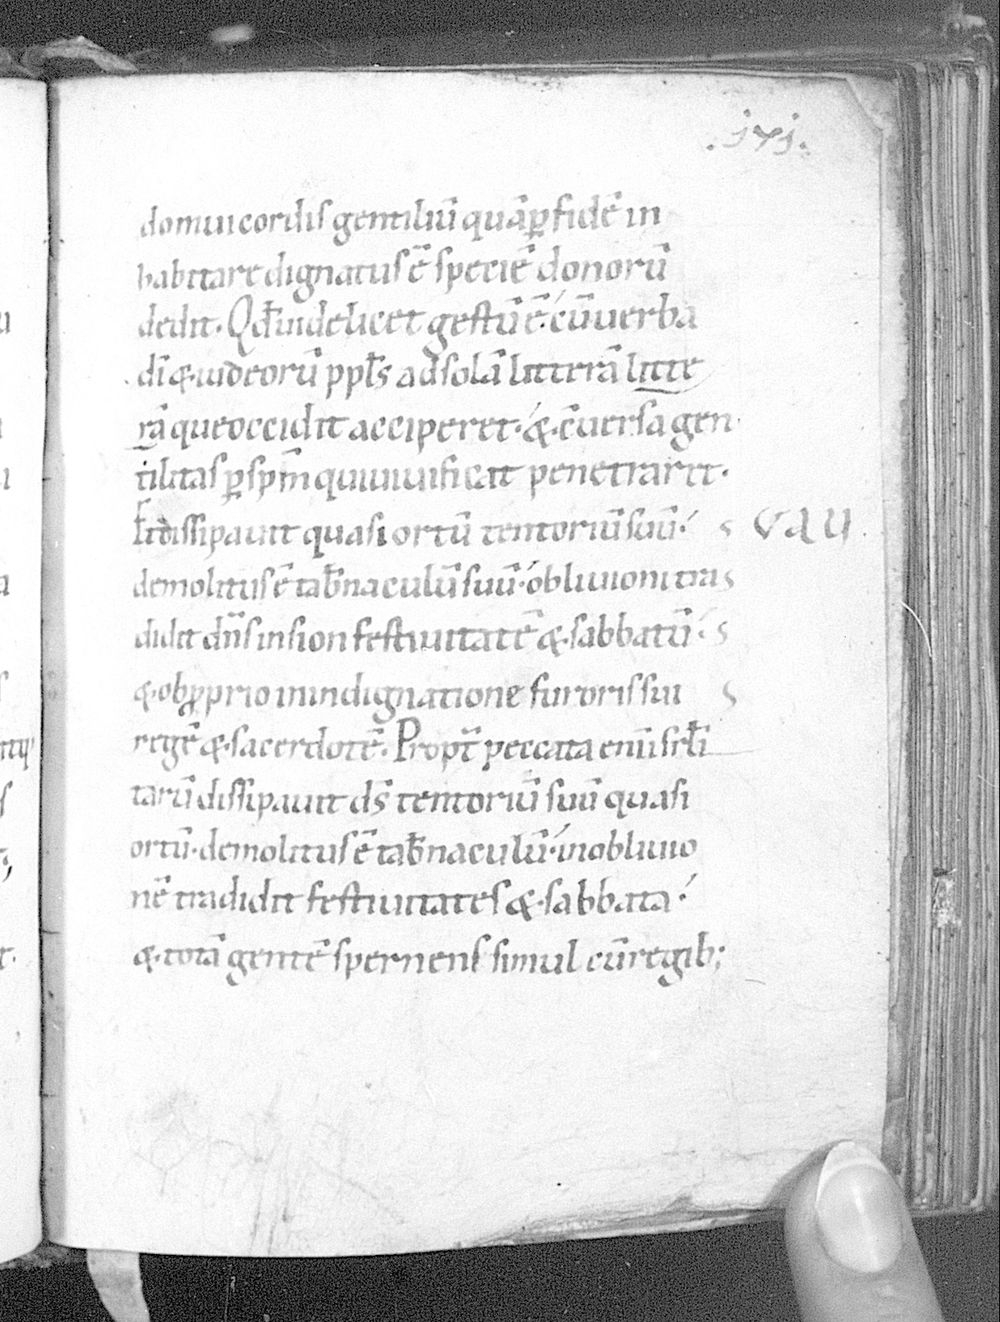 .171.
domui cordis gentiliū quā ꝑ fidē in
habitare dignatus ē speciē donorū
dedit. Qđ uidelicet gestū ē. cū uerba
dī & iudeorū ppl̄s ad solā litterā litte
rā que occidit acciperet. & cūersa gen
tilitas ꝑ spm̄ qui uiuificat penetraret.
Et dissipauit quasi ortū tentoriū suū. VAU
demolitus ē tab̄naculū suū. obliuioni tra
didit dn̄s in sion festiuitatē & sabbatū.
& obꝓprio in indignatione furoris sui
regē & sacerdotē. Propt̄ peccata eni isrl̄i
tarū dissipauit ds̄ tentoriū suū quasi
ortū. demolitus ē tab̄naculū. in obliuio
nē tradidit festiuitates & sabbata.
& totā gentē spernens simul cū regib;